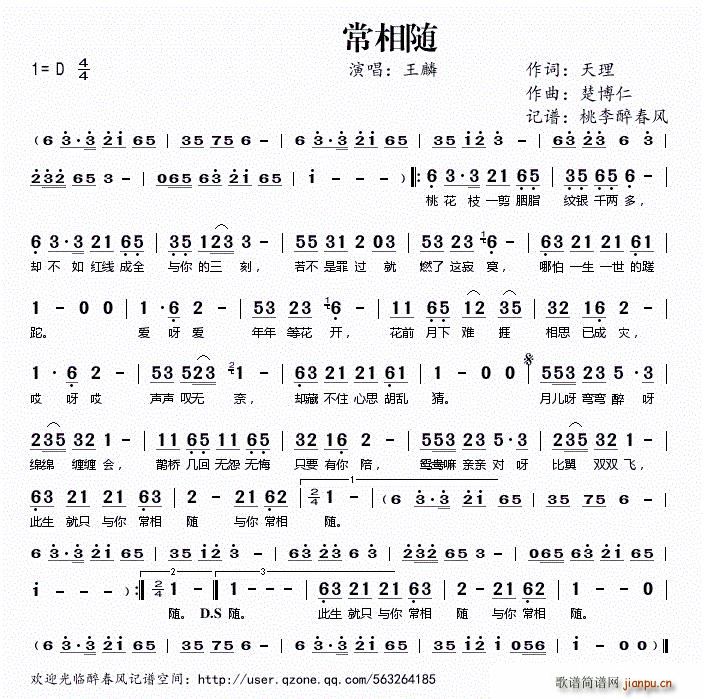 常相随
1= D 4/4 演唱：王麟 作词：天理
作曲：楚博仁
记谱：桃李醉春风
( 6 3·3 2i 65 | 35 75 6 - | 6 3·3 2i 65 | 35 i2 3 - | 63 23 6 3 |
232 65 3 - | 065 63 2i 65 | i - - - ) ‖: 6 3·3 21 65 | 35 65 6 - |
桃 花 枝 一剪 胭脂 纹银 千两 多，
6 3·3 21 65 | 35 123 3 - | 55 31 2 03 | 53 23 1 6 - | 63 21 21 65 |
却 不 如 红线 成全 与你 的三 刻， 若不 是罪 过 就 燃了 这寂 寞， 哪怕 一生 一世 的蹉
1 - 0 0 | 1·6 2 - | 53 23 1 6 - | 11 65 12 35 | 32 16 2 - |
跎。 爱 呀 爱 年年 等花 开， 花前 月下 难 捱 相思 已成 灾，
1·6 2 - | 53 523 2 1 - | 63 21 21 61 | 1 - 0 0 | 553 23 5·3 |
哎 呀 哎 声声 叹无 奈， 却藏 不住 心思 胡乱 猜。 月儿呀 弯弯 醉 呀
235 32 1 - | 11 65 11 65 | 32 16 2 - | 553 23 5·3 | 235 32 1 - |
绵绵 缠缠 会， 鹊桥 几回 无怨 无悔 只要 有你 陪， 鸳鸯嘛 亲亲 对 呀 比翼 双双 飞，
63 21 21 63 | 2 - 21 62 | 1 2/4 1 - | ( 6 3·3 2i 65 | 35 75 6 - |
此生 就只 与你 常相 随 与你 常相 随。
6 3·3 2i 65 | 35 i2 3 - | 63 23 6 3 | 232 65 3 - | 065 63 2i 65 |
i - - - ) :‖ 2 2/4 1 - | 3 1 - - - | 63 21 21 63 | 2 - 21 62 | 1 - - 0 |
随。 D.S 随。 此生 就只 与你 常相 随 与你 常相 随。
( 6 3·3 2i 65 | 35 75 6 - | 6 3·3 2i 65 | 35 i2 i 056 | i - - 0 ) ‖
欢迎光临醉春风记谱空间：http://user.qzone.qq.com/563264185
歌谱简谱网
jianpu.cn